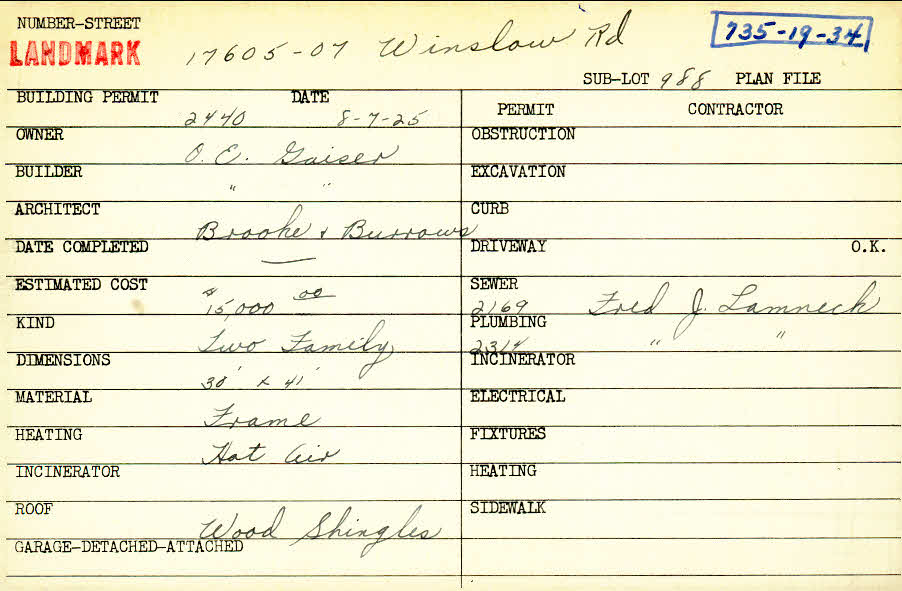 NUMBER-STREET
LANDMARK
17605-07 Winslow Rd
735-19-34
SUB-LOT 988 PLAN FILE
BUILDING PERMIT DATE
2440 8-7-25
PERMIT CONTRACTOR
OWNER
O. E. Gaiser
OBSTRUCTION
BUILDER
" "
EXCAVATION
ARCHITECT
Brooke & Burrows
CURB
DATE COMPLETED
—
DRIVEWAY O.K.
ESTIMATED COST
$15,000 00
SEWER
2169 Fred J. Lamneck
KIND
Two Family
PLUMBING
2314 " "
DIMENSIONS
30' x 41'
INCINERATOR
MATERIAL
Frame
ELECTRICAL
HEATING
Hot Air
FIXTURES
INCINERATOR
HEATING
ROOF
Wood Shingles
SIDEWALK
GARAGE-DETACHED-ATTACHED